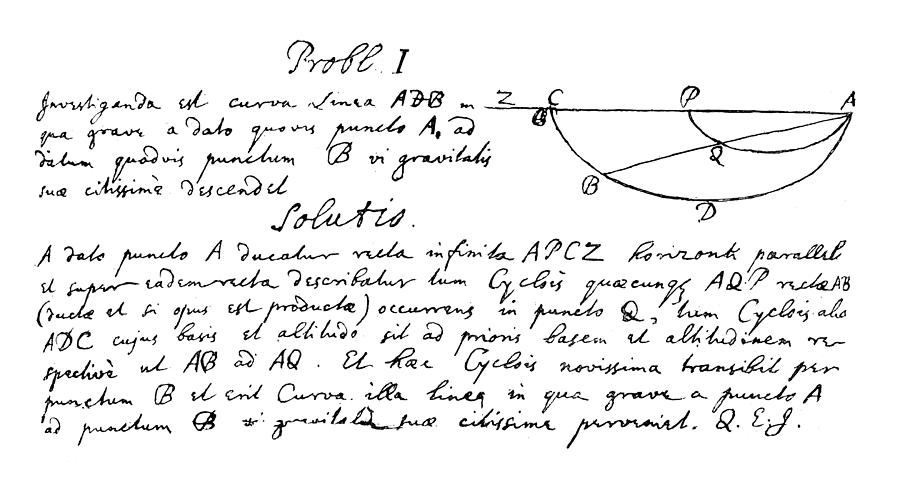 Probl. I
Investiganda est curva Linea ADB in
qua grave a dato quovis puncto A, ad
datum quodvis punctum B vi gravitatis
suæ citissimè descendet
Solutio.
A dato puncto A ducatur recta infinita APCZ horizonti parallel
et super eadem recta describatur tum Cyclois quæcunq AQP rectæ AB
(ductæ et si opus est productæ) occurrens in puncto Q, tum Cyclois alia
ADC cujus basis et altitudo sit ad prioris basem et altitudinem re-
spectivè ut AB ad AQ. Et hæc Cyclois novissima transibit per
punctum B et erit Curva illa linea in qua grave a puncto A
ad punctum B vi gravitatis suæ citissime perveniet. Q.E.J.
Z C P A
Q
B
D